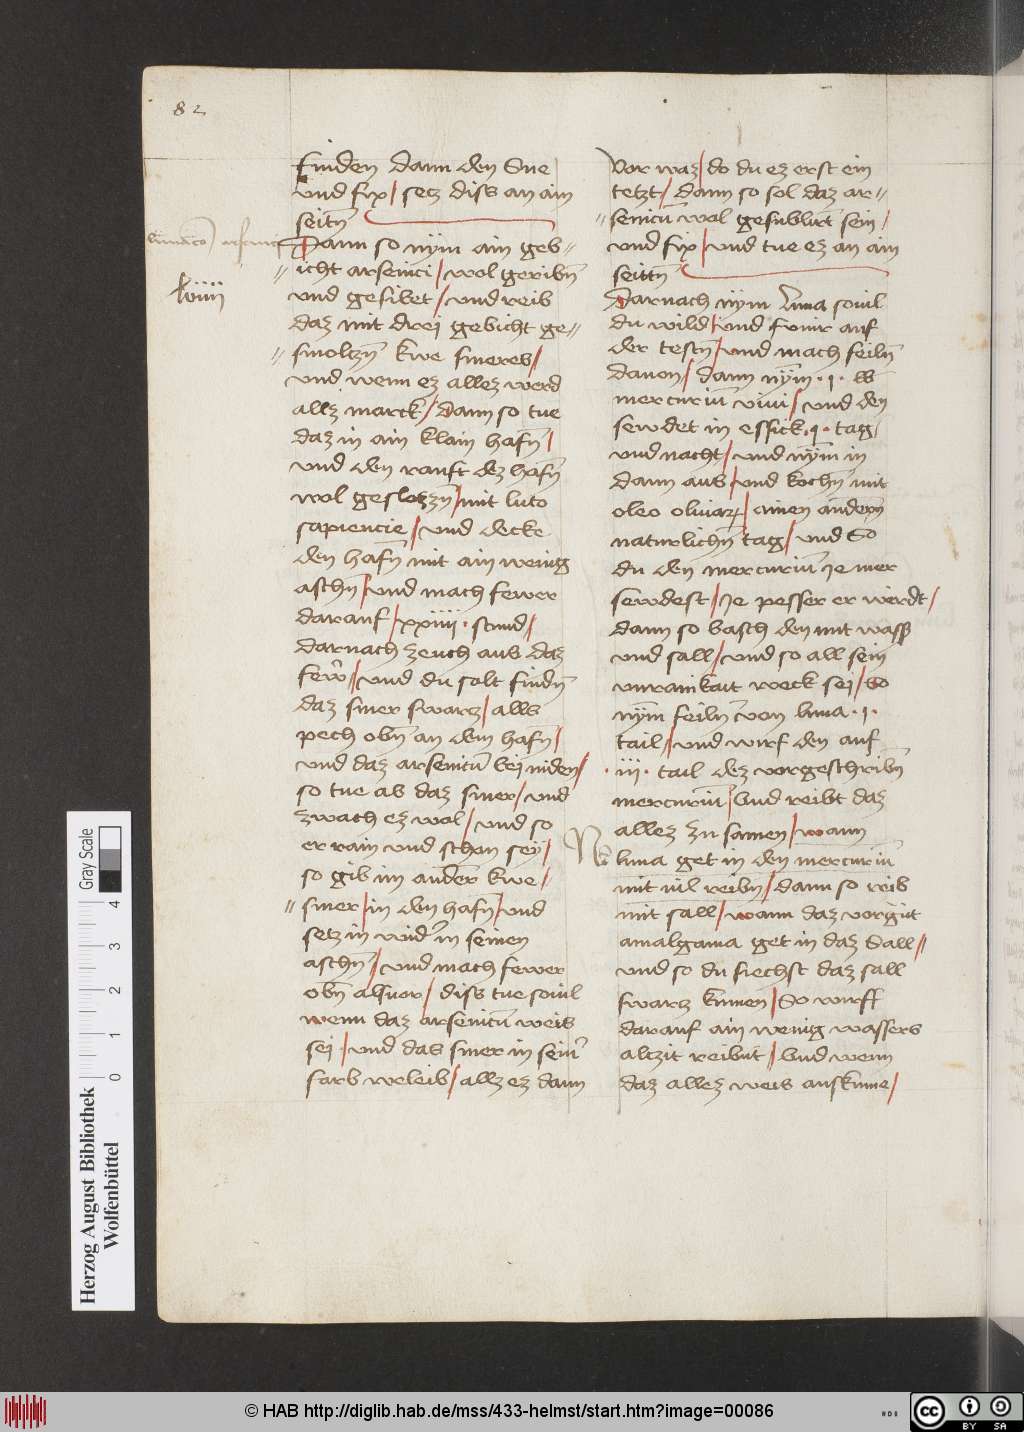 82
finden dann den Sne
und fyx / secz diss an ain
seitñ
Dann so nÿm ain geb〃
〃icht arsenici / wol geribñ
und gesibet / und reib
daz mit drei gebicht ge〃
〃smoltzñ kwe smereb /
und wenn ez allez werd
allz marck / dann so tue
daz in ain klain hafñ /
und den ranft dez hafñ
wol geslozzñ / mit luto
sapiencie / und decke
den hafñ mit ain wenig
aschñ / und mach fewer
darauf / xxiiii · stund /
darnach zeuch aus daz
few̃ / und du solt findñ
daz smer swarcz / alls
pech obñ an dem hafñ /
und daz arsenicũ bei niden /
so tue ab daz smer / und
zwach ez wol / und so
er rain und schon seÿ /
so gib im ander kwe /
〃smer / in den hafñ / und
setz in wider in seinen
aschñ / und mach fewer
obñ alsuor / diss tue souil
wenn daz arsenicũ weis
sei / und das smer in sein̄
farb weleib / allz ez dann
vor waz / do du ez erst ein
tetzt / dann so sol daz ar〃
〃senicũ wol gesublirt sein /
und fyx / und tue ez an ain
seittñ
Darnach nÿm luna souil
du wild / und funir auf
der testñ / und mach feilñ
dauon / dann nÿm · i · lb
mercuriũ viui / und den
sewdet in essick · i · tag
und nacht / und nÿm in
dann aus / und kochñ mit
oleo oliuar / ainen anderñ
naturlichñ tag / und So
du den mercuriũ ye mer
sewdest / ye pesser er wirdt /
dann so wasch den mit wasser
und sall / und so all sein
unrainkait weck sei / So
nÿm feilñ von luna · i ·
tail / und wirf den auf
· iii · tail dez vorgeschribñ
mercuriũ / Und reibt daz
allez zu samen / wann
luna get in den mercuriũ
mit uil reibñ / dann so reib
mit sall / wann daz vorgut
amalgama get in daz Sall /
und so du siechst daz sall
swarcz kumen / So wirff
darauf ain wenig wassers
alczit reibnt / Und wenn
daz allez weis auskume /
Herzog August Bibliothek
Wolfenbüttel
0 1 2 3 4
Gray Scale
© HAB http://diglib.hab.de/mss/433-helmst/start.htm?image=00086
cc BY SA